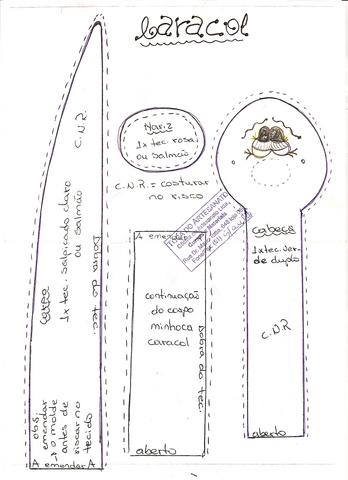 Caracol
Corpo
1x tec. salpicado claro
ou salmão
C.N.R.
Dobra do tec.
obs.
emendar
o molde
antes de
riscar no
tecido
A emendar A
Nariz
1x tec. rosa
ou salmão
C.N.R = costurar
no risco
TOCA DO ARTESANATO
A emendar
continuação
do corpo
minhoca
caracol
Dobra do tec.
aberto
Cabeça
1x tec. ver
de duplo
C.N.R
aberto